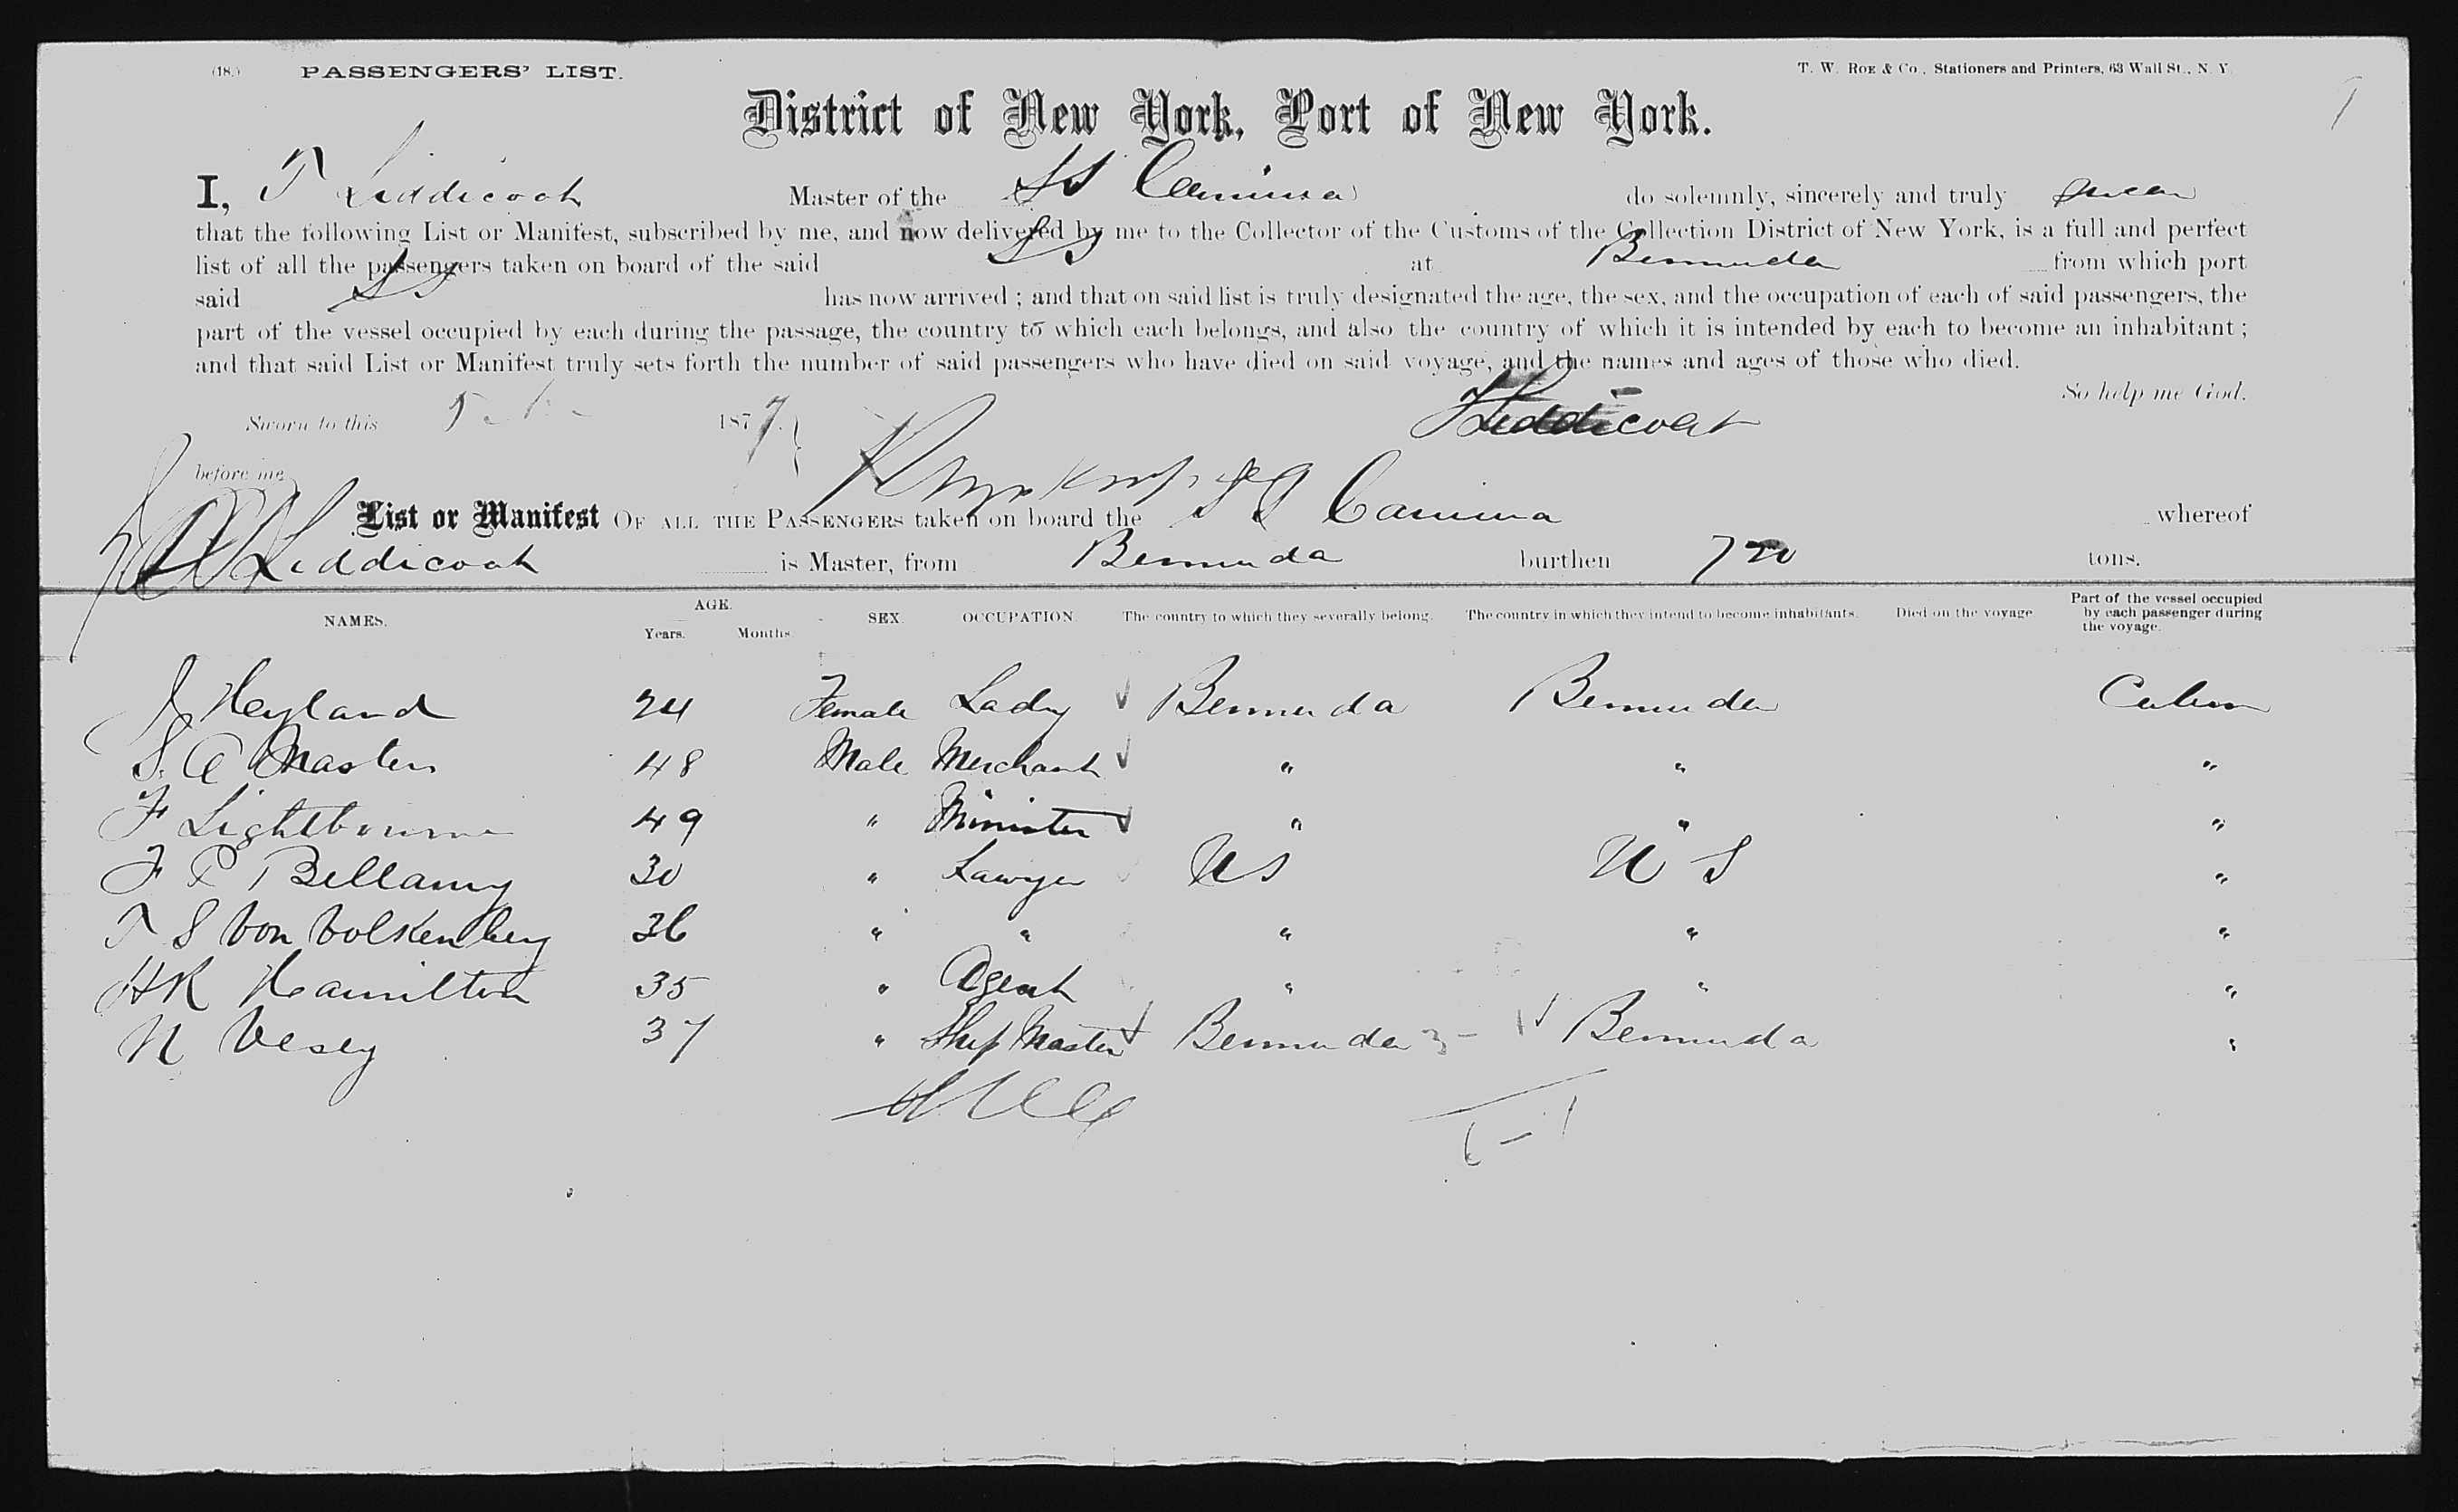 (18.) PASSENGERS' LIST. T. W. ROE & Co., Stationers and Printers, 63 Wall St., N. Y.
District of New York, Port of New York.
I, T Liddicoat Master of the SS Canima do solemnly, sincerely and truly swear
that the following List or Manifest, subscribed by me, and now delivered by me to the Collector of the Customs of the Collection District of New York, is a full and perfect
list of all the passengers taken on board of the said SS at Bermuda from which port
said SS has now arrived ; and that on said list is truly designated the age, the sex, and the occupation of each of said passengers, the
part of the vessel occupied by each during the passage, the country to which each belongs, and also the country of which it is intended by each to become an inhabitant ;
and that said List or Manifest truly sets forth the number of said passengers who have died on said voyage, and the names and ages of those who died.
So help me God.
Sworn to this 1877. Liddicoat
before me
List or Manifest OF ALL THE PASSENGERS taken on board the SS Canima whereof
Liddicoat is Master, from Bermuda burthen 720 tons.
NAMES. AGE. Years. Months. SEX. OCCUPATION. The country to which they severally belong. The country in which they intend to become inhabitants. Died on the voyage. Part of the vessel occupied by each passenger during the voyage.
J Heyland 24 Female Lady Bermuda Bermuda Cabin
S. A Masters 48 Male Merchant " " "
F Lightbourne 49 " Minister " " "
F P Bellamy 30 " Lawyer US U S "
T S Von Volkenberg 36 " " " " "
HR Hamilton 35 " Agent " " "
N Vesey 37 " Ship Master Bermuda 3 - Bermuda "